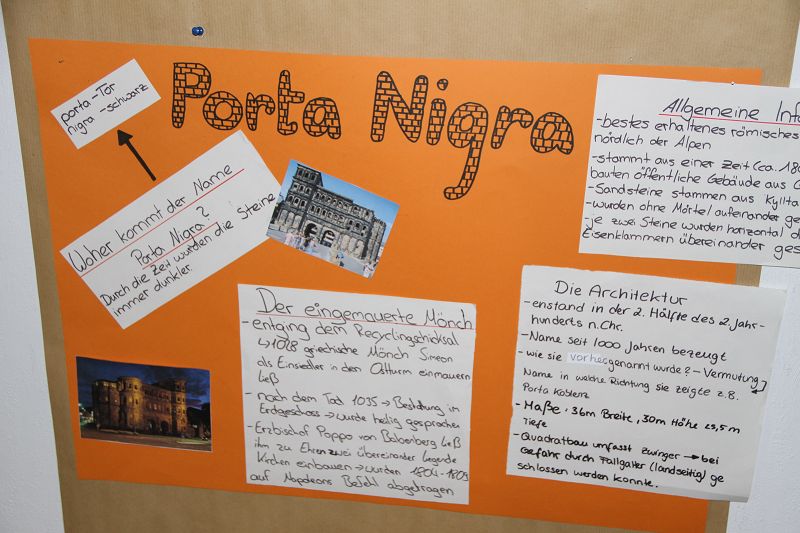 Porta Nigra
porta -Tor
nigra -schwarz
Woher kommt der Name
Porta Nigra?
Durch die Zeit wurden die Steine
immer dunkler.
Allgemeine Inf
-bestes erhaltenes römisches
nördlich der Alpen
-stammt aus einer Zeit (ca. 180
bauten öffentliche Gebäude aus
-Sandsteine stammen aus Kyllta
-wurden ohne Mörtel aufeinander ge
-je zwei Steine wurden horizontal
Eisenklammern übereinander ges
Der eingemauerte Mönch
-entging dem Recyclingschicksal
↳1028 griechische Mönch Simeon
als Einsiedler in den Ostturm einmauern
ließ
-nach dem Tod 1035 → Bestattung im
Erdgeschoss → wurde heilig gesprochen
-Erzbischof Poppo von Babenberg ließ
ihm zu Ehren zwei übereinander liegende
Kirchen einbauen → wurden 1804-1809
auf Napoleons Befehl abgetragen
Die Architektur
-enstand in der 2. Hälfte des 2. Jahr-
hunderts n.Chr.
-Name seit 1000 Jahren bezeugt
-wie sie vorher genannt wurde? - Vermutung
Name in welche Richtung sie zeigte z.B.
Porta Koblenz
-Maße: 36m Breite, 30m Höhe 21,5m
Tiefe
-Quadratbau umfasst Zwinger → bei
Gefahr durch Fallgatter (landseitig) ge
schlossen werden konnte.